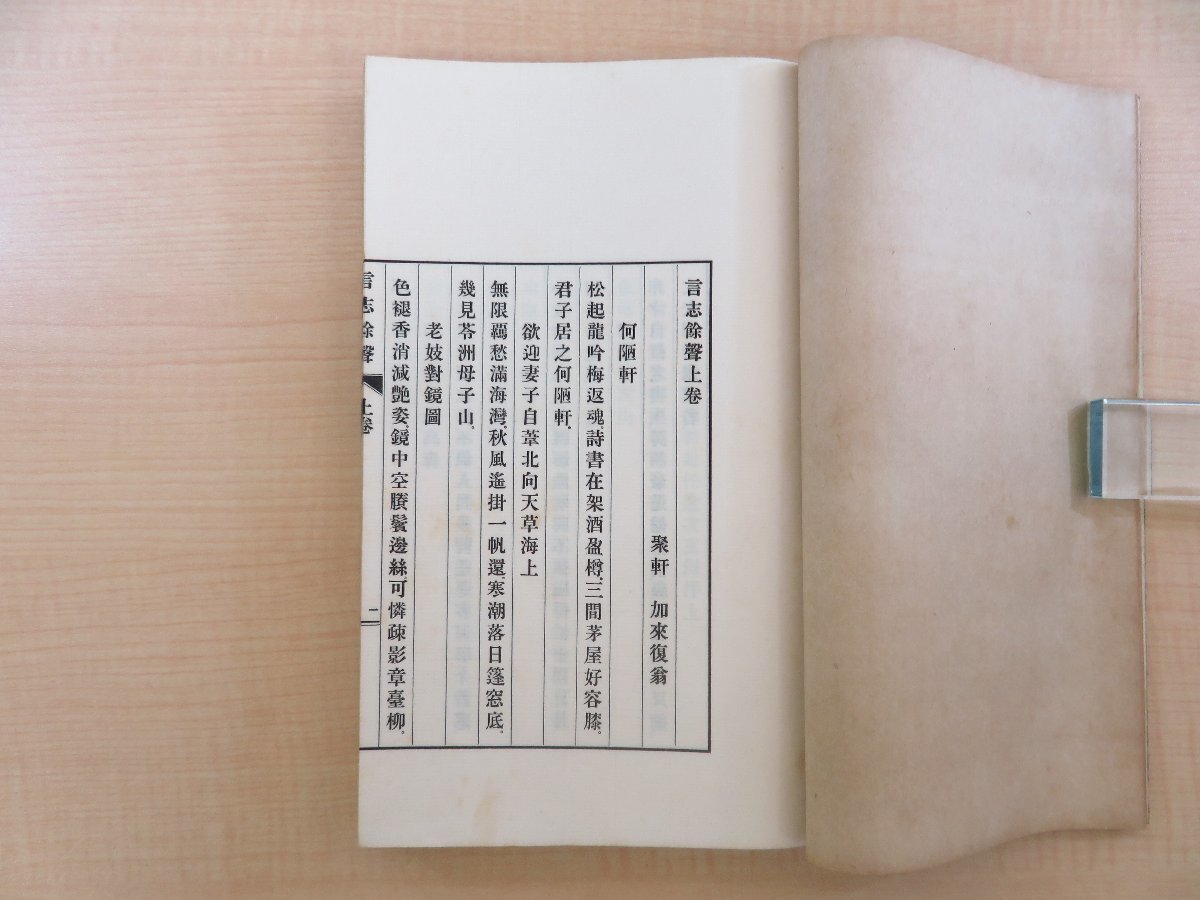 言志餘聲上卷
聚軒 加來復翁
何陋軒
松起龍吟梅返魂。詩書在架酒盈樽。三間茅屋好容膝。
君子居之何陋軒。
欲迎妻子自葦北向天草海上
無限羈愁滿海灣。秋風遙掛一帆還。寒潮落日篷窓底。
幾見苓洲母子山。
老妓對鏡圖
色褪香消減艶姿。鏡中空賸鬢邊絲。可憐疎影章臺柳。
言志餘聲 上卷 一